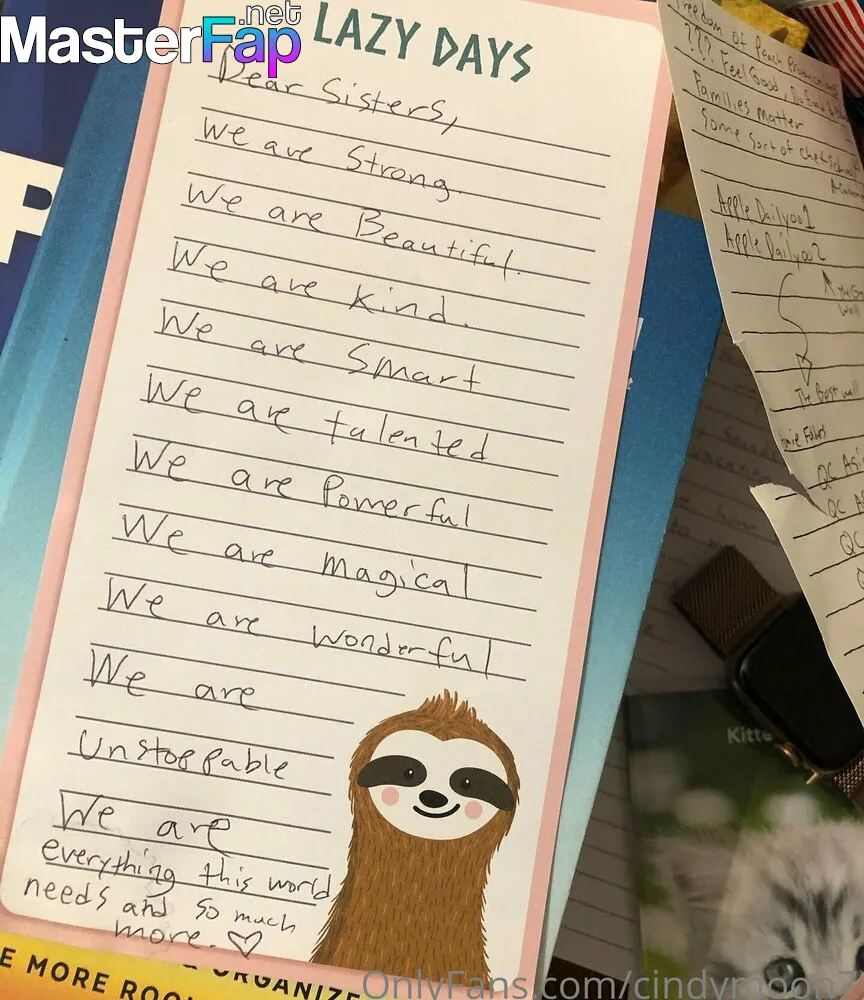 MasterFap.net
LAZY DAYS
Dear Sisters,
We are Strong.
We are Beautiful.
We are kind.
We are Smart
We are talented
We are Powerful
We are magical
We are wonderful
We are
Unstoppable
We are
everything this world
needs and so much
more. ♡
Freedom of Peach
??? Feel Good
Families matter
Some sort of chef
Apple Daily001
Apple Daily002
The Best
QC
QC
QC
Kitte
P
E MORE
ORGANIZE
OnlyFans.com/cindymoon